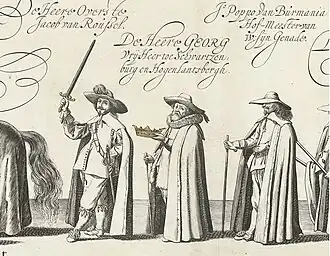 De Heere Overste
Jacob van Roussel.
De Heere GEORG
Vry Heer toe Schwartzen,
burg en Hogenlantsbergh.
J. Poppo van Burmania
Hof-Meester van
W. syn Genade.